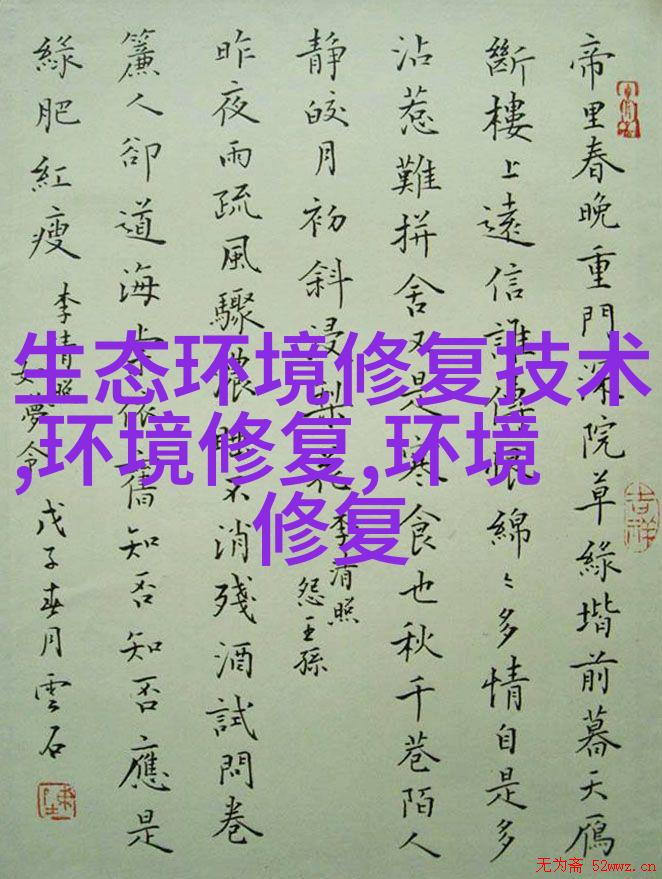 帝里春晚重門深院草緑堦前暮天鴈
斷樓上遠信誰傳恨綿〻多情自是多
沾惹難拼舍又是寒食也秋千巷陌人
静皎月初斜浸梨花
李清照
怨王孫
昨夜雨疏風驟濃睡不消殘酒試問卷
簾人卻道海棠依舊知否知否應是
緑肥紅瘦
李清照
如夢令
戊子春月雲石
吉祥
生态环境修复技术
,环境修复,环境
修复
无为斋 52wwz.cn